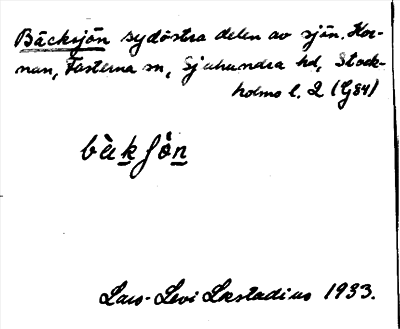 Bäcksjön sydöstra delen av sjön Hor-
nan, Fasterna sn, Sjuhundra hd, Stock-
holms l. 2 (G84)
bàkʃön
Lars-Levi Læstadius 1933.